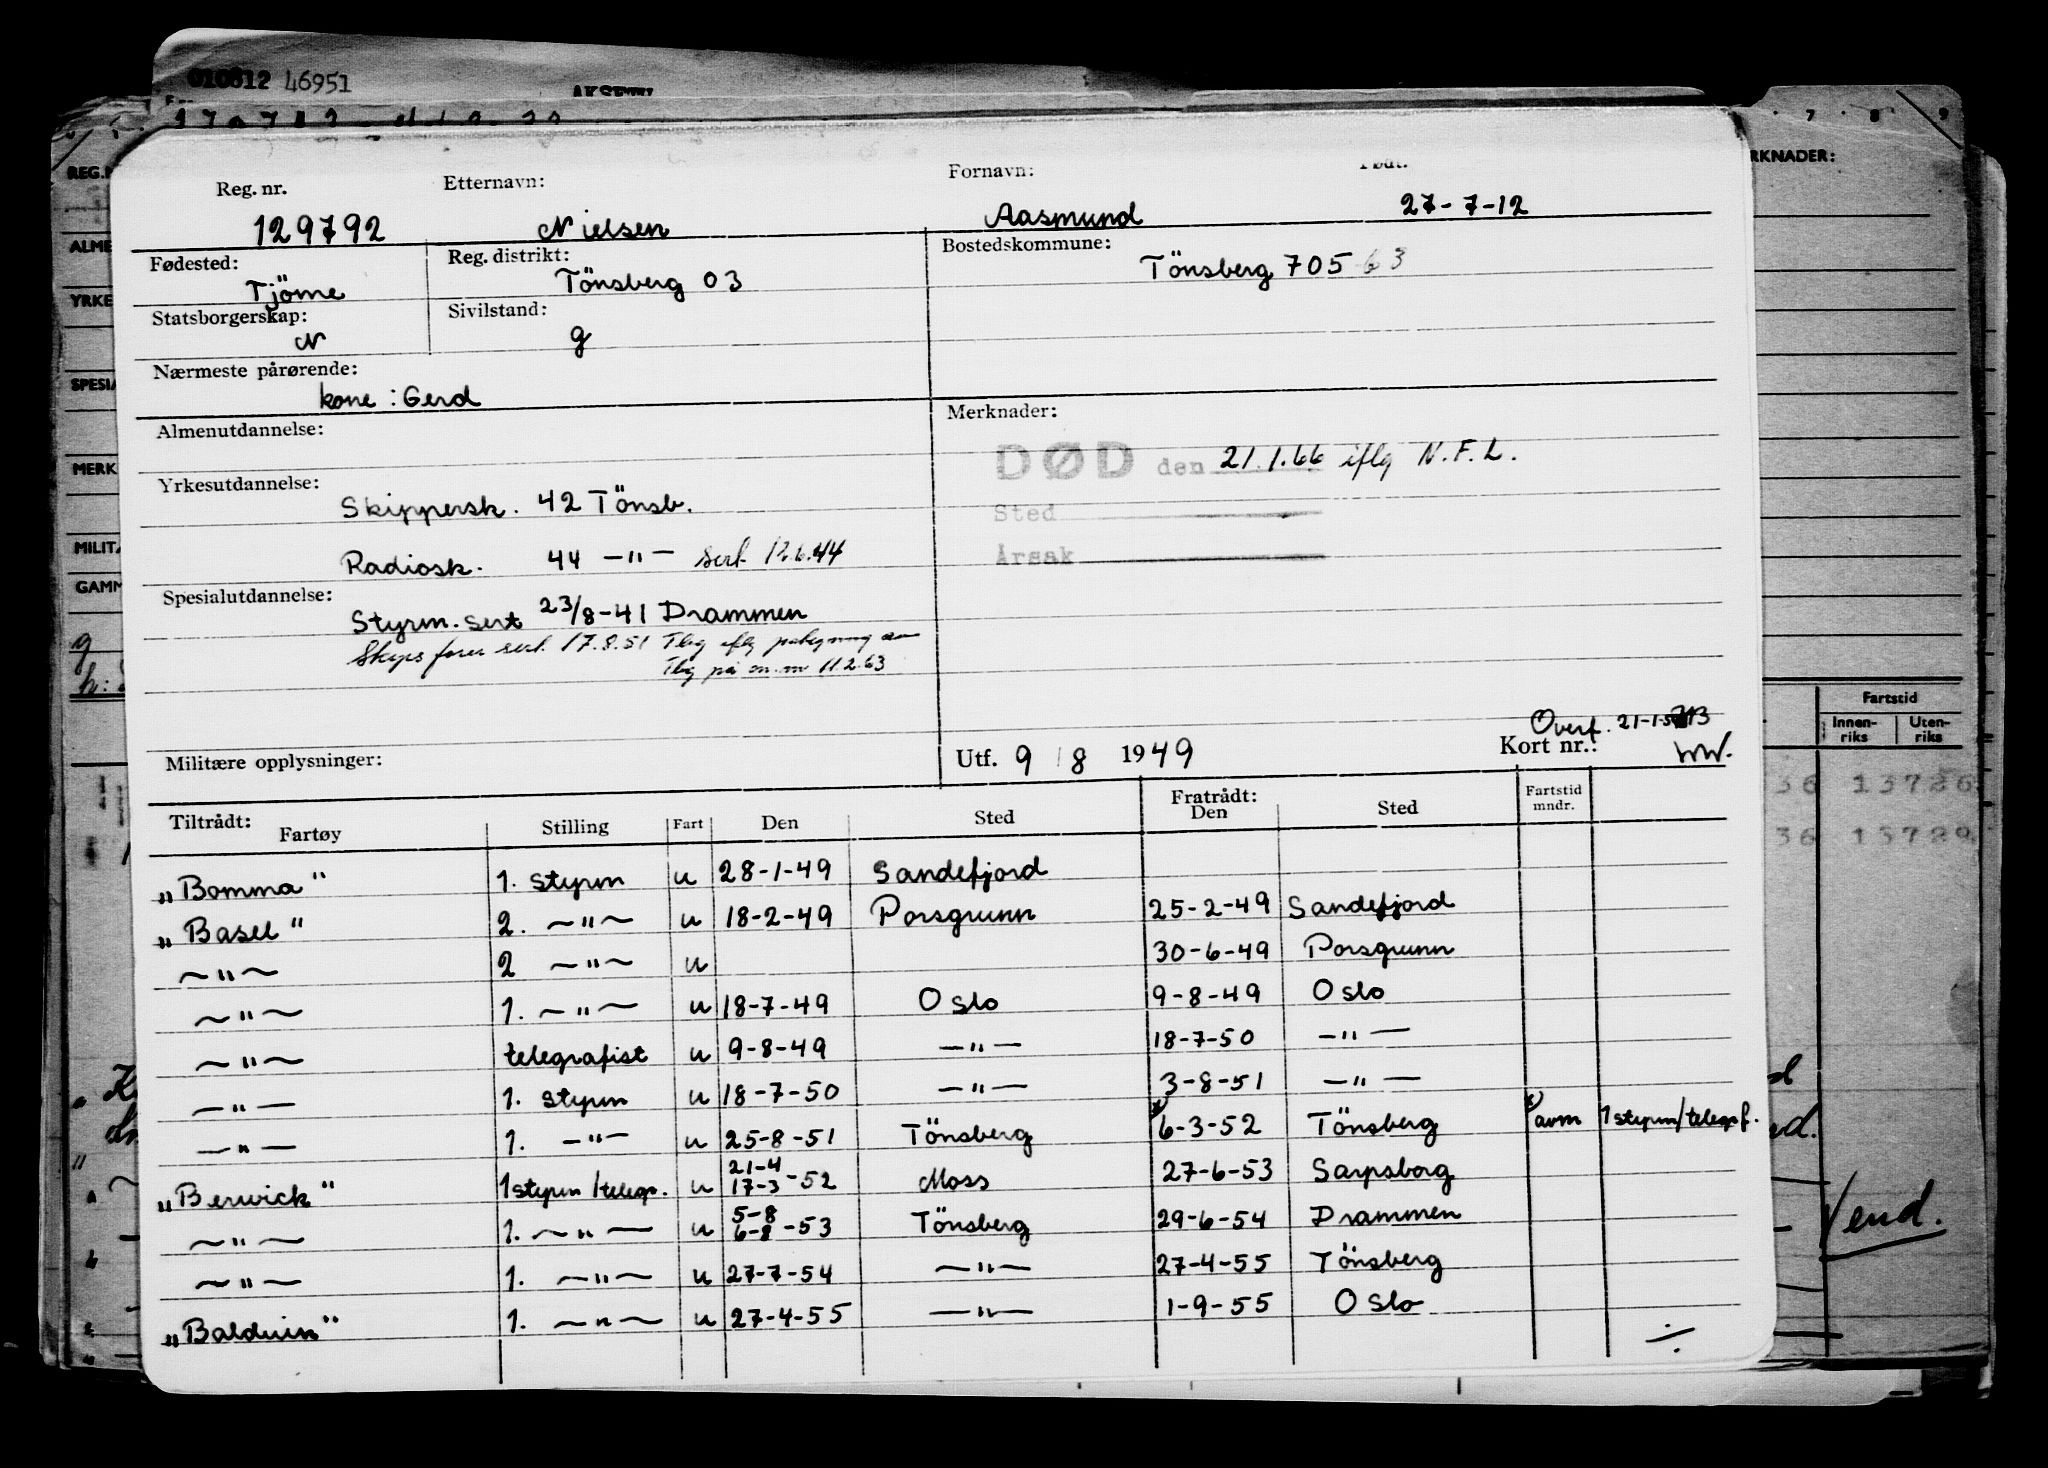 010812 46951
7 8 9
REG.N
RKNADER:
Reg. nr. Etternavn: Fornavn: Født:
129792 Nielsen Aasmund 27-7-12
ALME
Fødested: Reg. distrikt: Bostedskommune:
Tjöme Tönsberg 03 Tönsberg 705 63
YRKE
Statsborgerskap: Sivilstand:
N g
SPESIA
Nærmeste pårørende:
kone : Gerd
Almenutdannelse: Merknader:
MERK
DØD den 21.1.66 iflg N.F.L.
Yrkesutdannelse:
Skippersk. 42 Tönsb. Sted
MILITÆ
Radiosk. 44 —"— sert 12.6.44 Årsak
GAMM
Spesialutdannelse:
Styrm. sert 23/8-41 Drammen
Skipsfører sert. 17.8.51 Tbg iflg
Tbg på 11.2.63
g
Fartstid
Innen- riks Uten- riks
Overf. 21-1-
Militære opplysninger: Utf. 9/8 1949 Kort nr.: WW.
36 13726
36 13729
Tiltrådt: Fratrådt:
Fartøy Stilling Fart Den Sted Den Sted Fartstid mndr.
"Bomma" 1. styrm u 28-1-49 Sandefjord
"Basel" 2. —"— u 18-2-49 Porsgrunn 25-2-49 Sandefjord
—"— 2 —"— u 30-6-49 Porsgrunn
—"— 1. —"— u 18-7-49 Oslo 9-8-49 Oslo
—"— telegrafist u 9-8-49 —"— 18-7-50 —"—
—"— 1. styrm u 18-7-50 —"— 3-8-51 —"—
—"— 1. —"— u 25-8-51 Tönsberg x) 6-3-52 Tönsberg x) avm 1 styrm/telegrf.
"Berwick" 1 styrm/telegr. u 21-4 17-3-52 Moss 27-6-53 Sarpsborg
—"— 1. —"— u 5-8 6-8-53 Tönsberg 29-6-54 Drammen
—"— 1. —"— u 27-7-54 —"— 27-4-55 Tönsberg
"Balduin" 1. —"— u 27-4-55 —"— 1-9-55 Oslo
Vend.